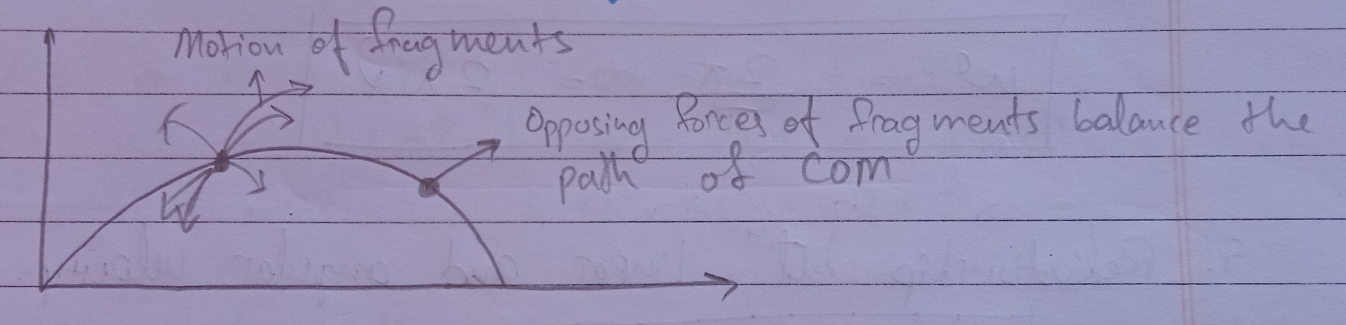 Motion of fragments
Opposing forces of fragments balance the
path of COM